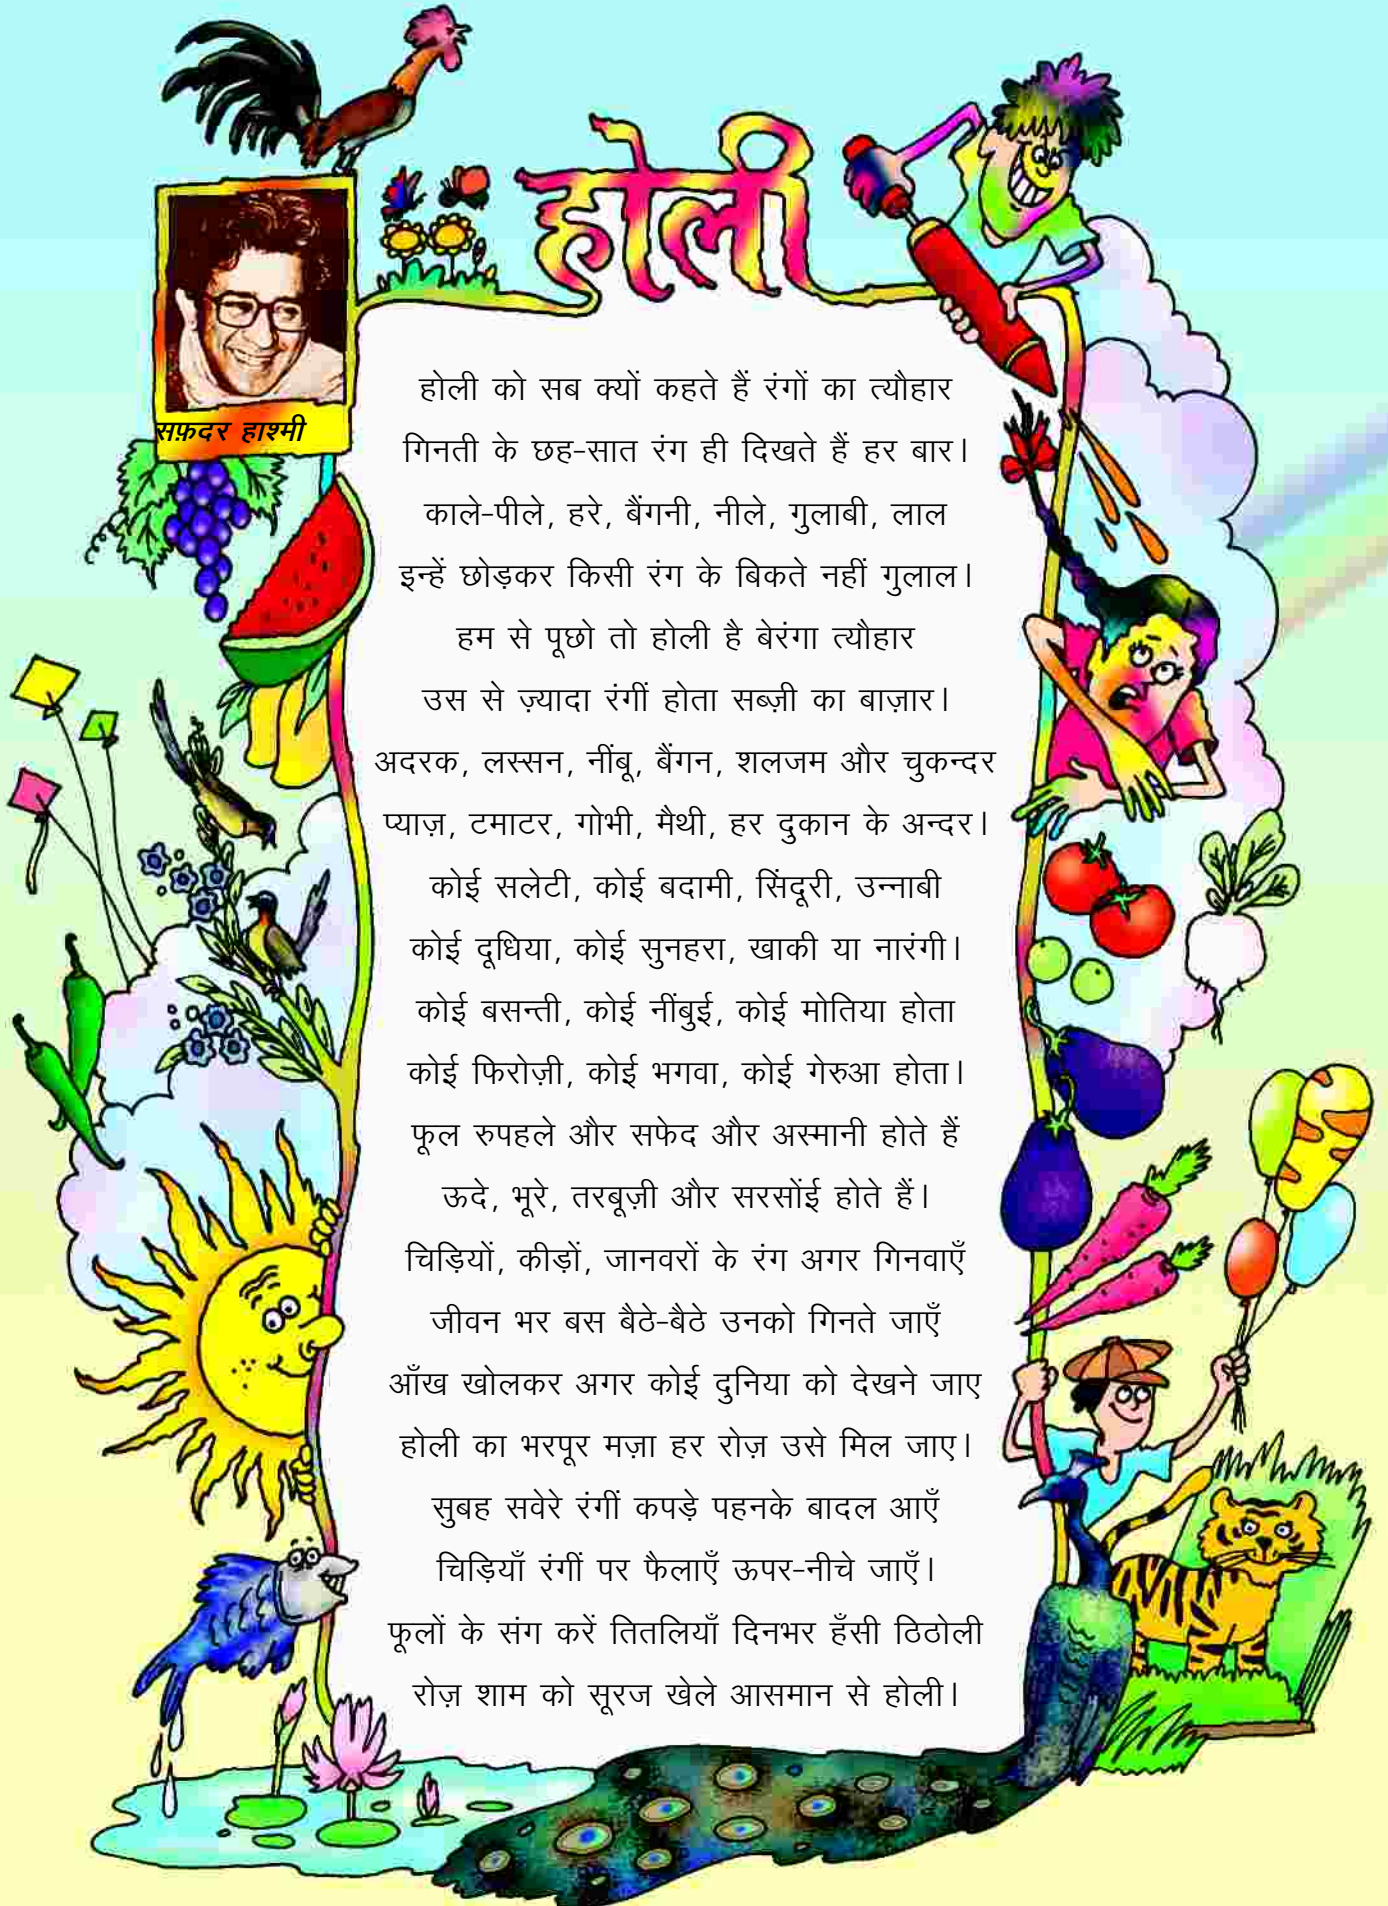 होली
सफ़दर हाश्मी
होली को सब क्यों कहते हैं रंगों का त्यौहार
गिनती के छह-सात रंग ही दिखते हैं हर बार।
काले-पीले, हरे, बैंगनी, नीले, गुलाबी, लाल
इन्हें छोड़कर किसी रंग के बिकते नहीं गुलाल।
हम से पूछो तो होली है बेरंगा त्यौहार
उस से ज़्यादा रंगीं होता सब्ज़ी का बाज़ार।
अदरक, लस्सन, नींबू, बैंगन, शलजम और चुकन्दर
प्याज़, टमाटर, गोभी, मैथी, हर दुकान के अन्दर।
कोई सलेटी, कोई बदामी, सिंदूरी, उन्नाबी
कोई दूधिया, कोई सुनहरा, खाकी या नारंगी।
कोई बसन्ती, कोई नींबुई, कोई मोतिया होता
कोई फिरोज़ी, कोई भगवा, कोई गेरुआ होता।
फूल रुपहले और सफेद और अस्मानी होते हैं
ऊदे, भूरे, तरबूज़ी और सरसोंई होते हैं।
चिड़ियों, कीड़ों, जानवरों के रंग अगर गिनवाएँ
जीवन भर बस बैठे-बैठे उनको गिनते जाएँ
आँख खोलकर अगर कोई दुनिया को देखने जाए
होली का भरपूर मज़ा हर रोज़ उसे मिल जाए।
सुबह सवेरे रंगीं कपड़े पहनके बादल आएँ
चिड़ियाँ रंगीं पर फैलाएँ ऊपर-नीचे जाएँ।
फूलों के संग करें तितलियाँ दिनभर हँसी ठिठोली
रोज़ शाम को सूरज खेले आसमान से होली।